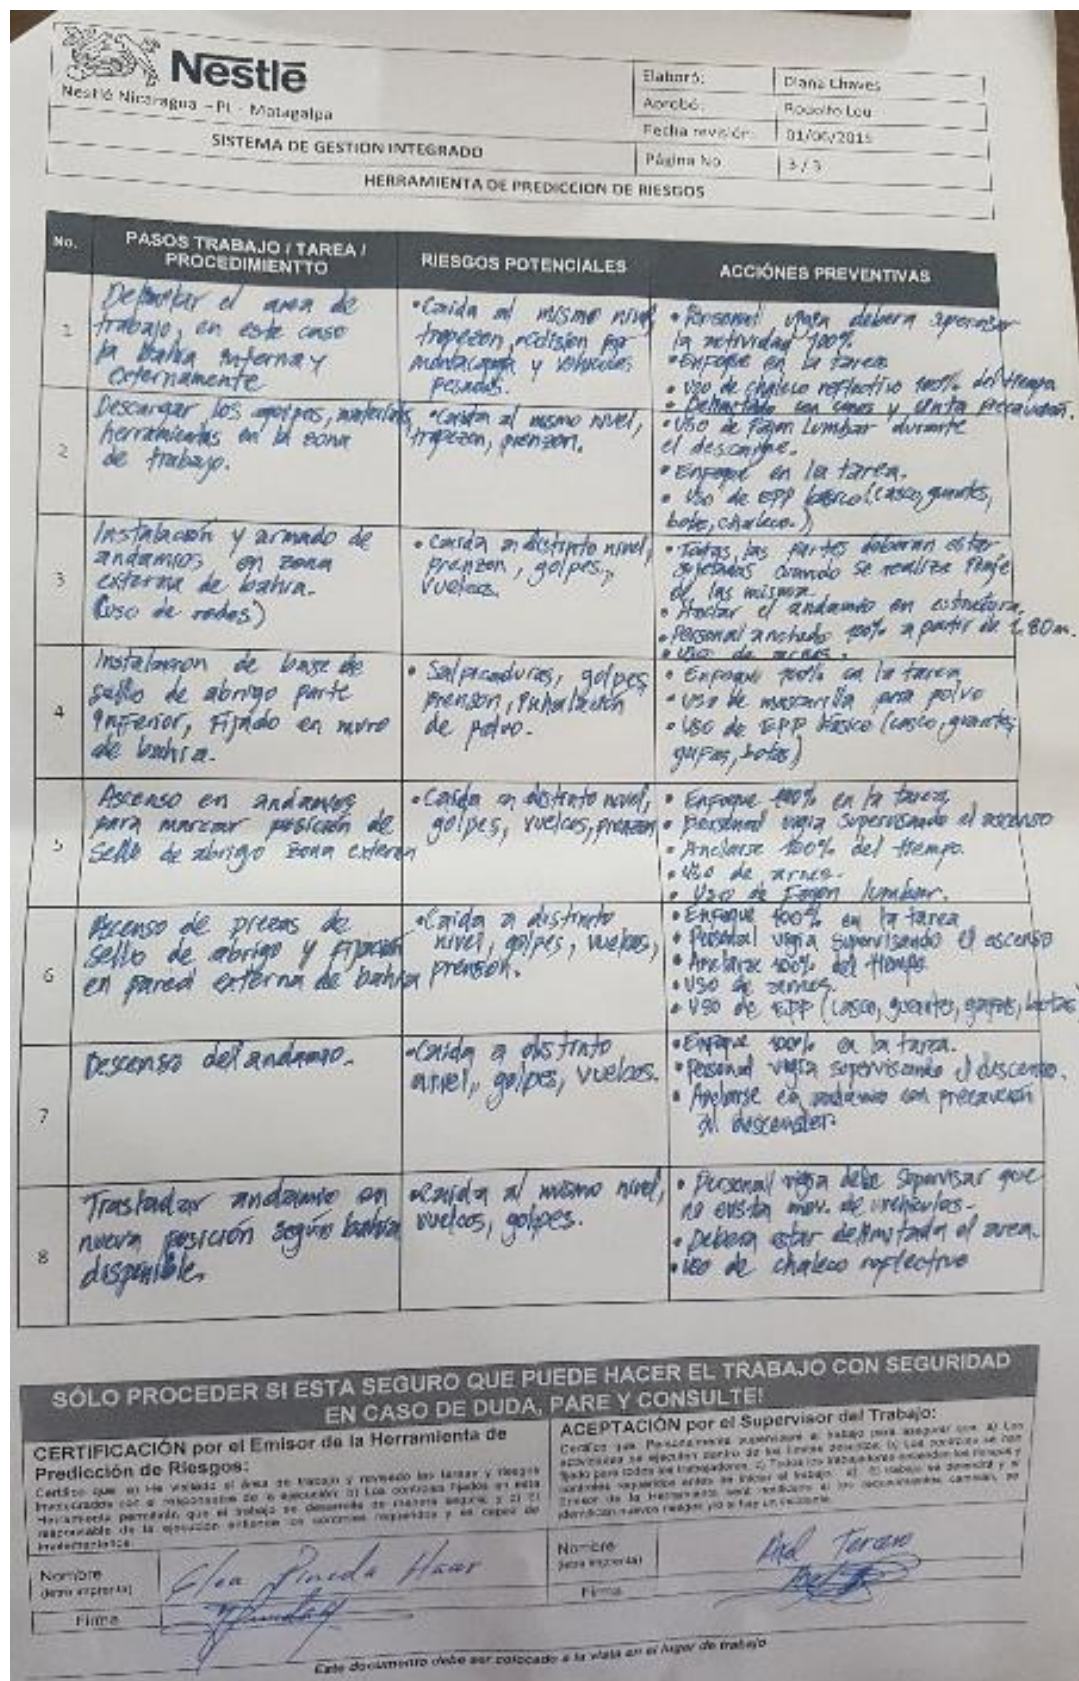 Nestlé
Nestlé Nicaragua – PL - Matagalpa
SISTEMA DE GESTION INTEGRADO
HERRAMIENTA DE PREDICCION DE RIESGOS
Elaboró: Diana Chaves
Aprobó: Rodolfo Lou
Fecha revisión: 01/06/2015
Página No. 3 / 3
No. PASOS TRABAJO / TAREA / PROCEDIMIENTTO RIESGOS POTENCIALES ACCIÓNES PREVENTIVAS
1
Delimitar el area de
trabajo, en este caso
la bahia interna y
externamente
• Caida al mismo nivel,
tropezon, colision por
montacarga y vehiculos
pesados.
• Personal vigia debera supervisar
la actividad 100%
• Enfoque en la tarea
• Uso de chaleco reflectivo 100% del tiempo
• Delimitado con conos y cinta precaución.
2
Descargar los equipos, materiales,
herramientas en la zona
de trabajo.
• Caida al mismo nivel,
tropezon, prenzon.
• Uso de Fajon Lumbar durante
el descargue.
• Enfoque en la tarea.
• Uso de EPP basico (casco, guantes,
bota, chaleco.)
3
Instalación y armado de
andamios en zona
externa de bahia.
(uso de redes)
• Caida a distinto nivel,
prenzon, golpes,
vuelcos.
• Todas las partes deberan estar
sujetadas cuando se realize
de las misma.
• Anclar el andamio en estructura.
• Personal anclado 100% a partir de 1,80m.
• Uso de arnes.
4
Instalacion de base de
sello de abrigo parte
inferior, Fijado en muro
de bahia.
• Salpicaduras, golpes,
prenzon, inhalación
de polvo.
• Enfoque 100% en la tarea
• Uso de mascarilla para polvo
• Uso de EPP básico (casco, guantes,
gafas, botas)
5
Ascenso en andamios
para marcar posición de
sello de abrigo zona externa
• Caida a distinto nivel,
golpes, vuelcos, prenzon
• Enfoque 100% en la tarea
• Personal vigia supervisando el ascenso
• Anclarse 100% del tiempo.
• Uso de arnes.
• Uso de Fajon lumbar.
6
Ascenso de piezas de
sello de abrigo y Fijación
en pared externa de bahia
• Caida a distinto
nivel, golpes, vuelcos,
prenson.
• Enfoque 100% en la tarea
• Personal vigia supervisando el ascenso
• Anclarse 100% del tiempo
• Uso de arnes.
• Uso de EPP (casco, guantes, gafas, botas)
7
Descenso del andamio.
• Caida a distinto
nivel, golpes, vuelcos.
• Enfoque 100% en la tarea.
• Personal vigia supervisando el descenso.
• Anclarse en andamio con precaución
al descender.
8
Trasladar andamio en
nueva posición según bahia
disponible.
• Caida al mismo nivel,
vuelcos, golpes.
• Personal vigia debe supervisar que
no exista mov. de vehiculos.
• Debera estar delimitada el area.
• Uso de chaleco reflectivo
SÓLO PROCEDER SI ESTA SEGURO QUE PUEDE HACER EL TRABAJO CON SEGURIDAD
EN CASO DE DUDA, PARE Y CONSULTE!
CERTIFICACIÓN por el Emisor de la Herramienta de
Predicción de Riesgos:
Certifico que: a) He visitado el área de trabajo y revisado las tareas y riesgos
involucrados con el responsable de la ejecución; b) Los controles fijados en esta
Herramienta permitirán que el trabajo se desarrolle de manera segura; y c) El
responsable de la ejecución entiende los controles requeridos y es capaz de
implementarlos.
Nombre
(letra imprenta)
Pineda
Firma
ACEPTACIÓN por el Supervisor del Trabajo:
Nombre
(letra imprenta)
Tercero
Firma
Este documento debe ser colocado a la vista en el lugar de trabajo